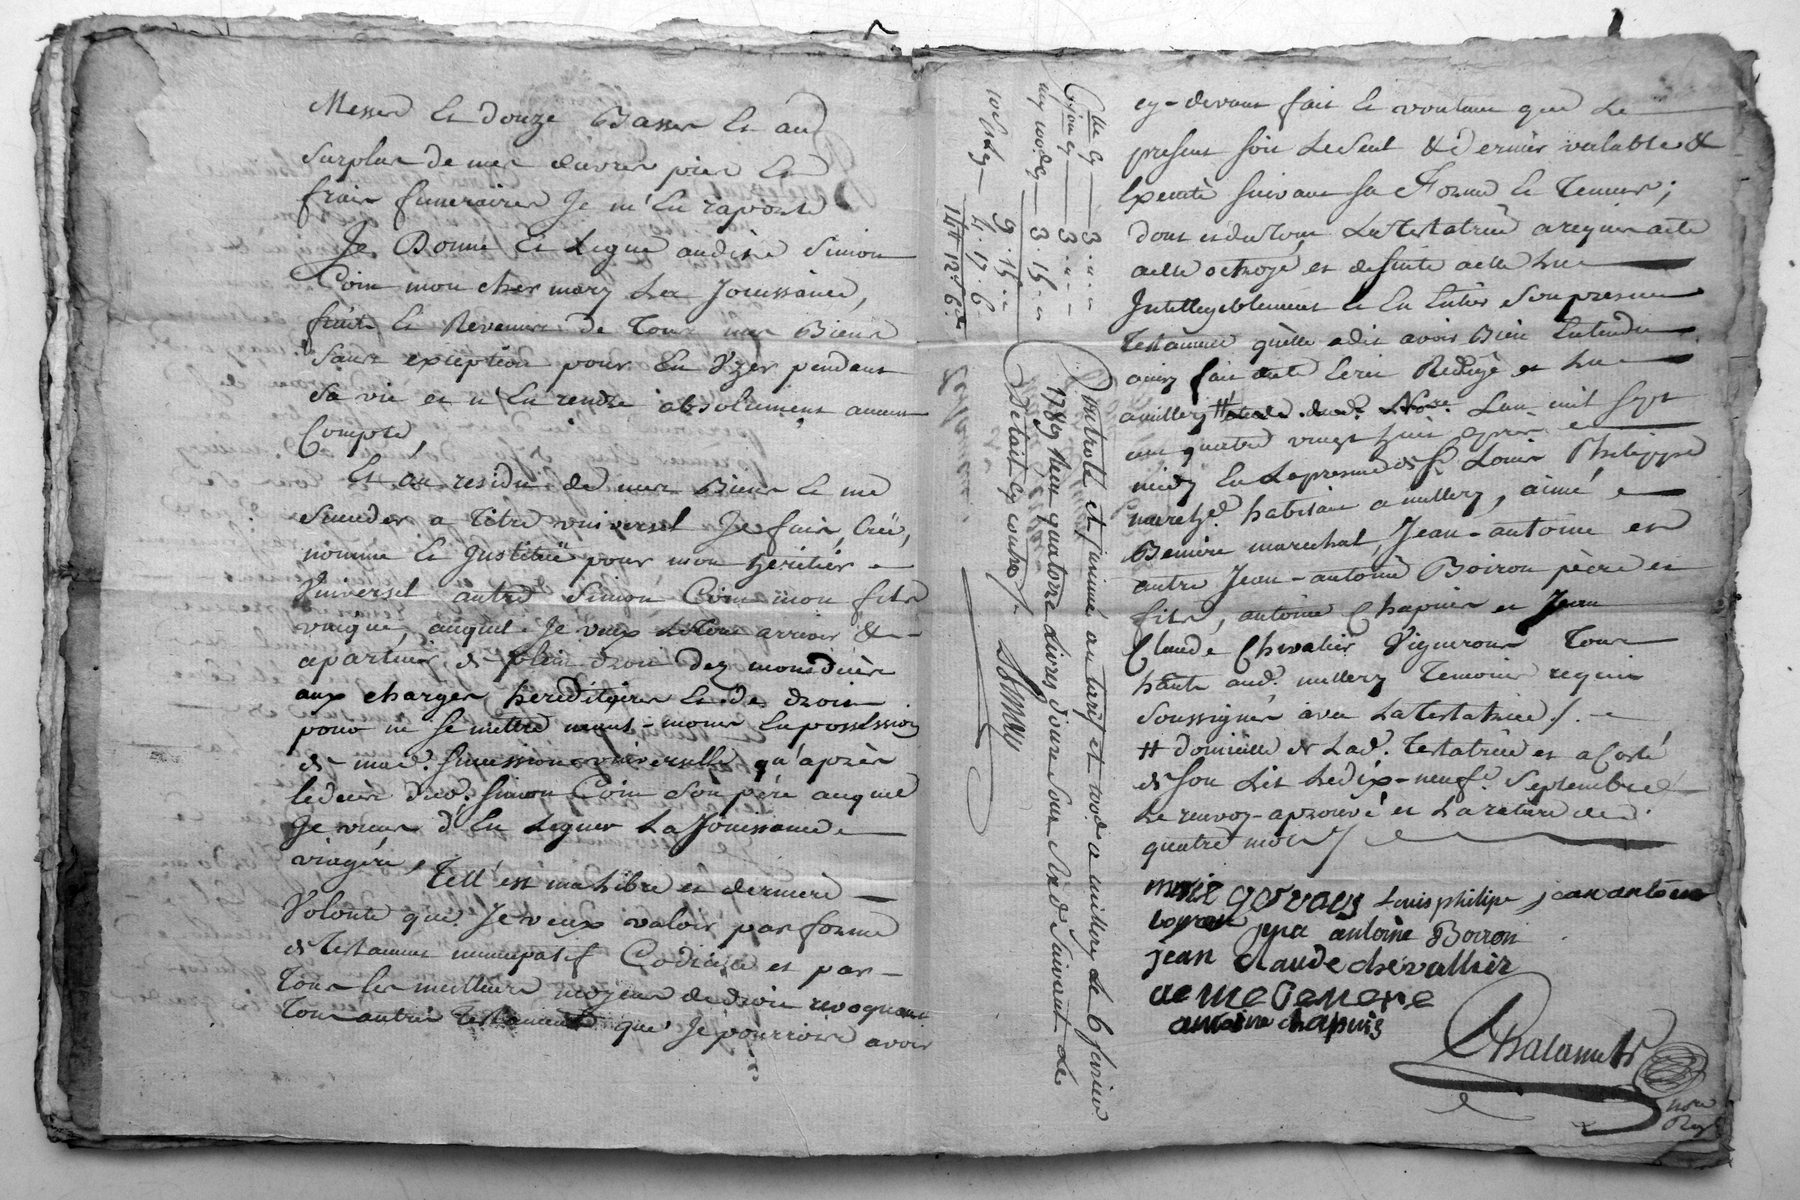 Messes et douze Basses et au
Surplus de mes œuvres pies et
frais funeraires Je m'en raporte
Je Donne et Legue audit Simon
Coin mon cher mary La Jouissance,
fruits et Revenus de Tous mes Biens
Sans exception pour En Uzer pendant
Sa vie et n'En rendre absolument aucun
Compte,
Et au residu de mes Biens Je me
a titre universel Je fais, Créé,
nomme et Jnstitüe pour mon heritier
Universel autre Simon Coin mon fils
unique, auquel Je veux Le Tout arriver &
apartenir de plein droit dez mon décès
aux charges hereditaires et de droit
pour ne se mettre neant-moins En possession
de mad. Succession universelle qu'après
le décès dud. Simon Coin Son père auquel
Je viens d'En Leguer La Jouissance
viagére,
Tell'est ma Libre et derniere
Volonté que Je veux valoir par forme
de Testament nuncupatif Codicile et par
Tous les meilleurs moyens de droit revoquant
Tous autres Testaments que Je pourrois avoir
Cll cy 3 " "
cy 3 " "
my 100.d cy 3 . 15 "
9 . 15 "
10 s. p. L. cy 4 . 17 . 6
14# 12s 6d
Controlé et jnsinué au tarif et 100.d a millery le 6 fevrier
1789 Reçu quatorze Livres douze Sous Six d. Suivant Le
Détait cy contre
cy-devant fait et voulant que Le
present soit Le Seul & dernier valable &
Exécuté suivant sa Forme et Teneur;
dont et du tout La Testatrice a requis acte
a elle octroyé et de suite a elle Lu
Jntelligiblement et En Entier Son present
Testament qu'elle a dit avoir Bien Entendu
ainsy fait dicté Ecrit Redigé et Lu
a millery # L'an mil Sept
cent quatre vingt huit après
midy En La presence de Sr. Louis Philippe
habitant a millery, aimé
Beniere marechal, Jean-antoine et
autre Jean-antoine Boiron père et
fils, antoine Chapuis et Jean
Claude Chevalier Vignerons Tous
hants aud. millery Temoins requis
Soussignés avec La Testatrice
# domicille de Lad. Testatrice et a Coté
de Son Lit Le dix-neuf.e Septembre
Le renvoy aprouvé et La rature de
quatre mots
marie gervais Louis philipe jean antoine
boyron jean antoine Boiron
jean claude chevallier
aeme Benere
antoine chapuis
nore
Roy.